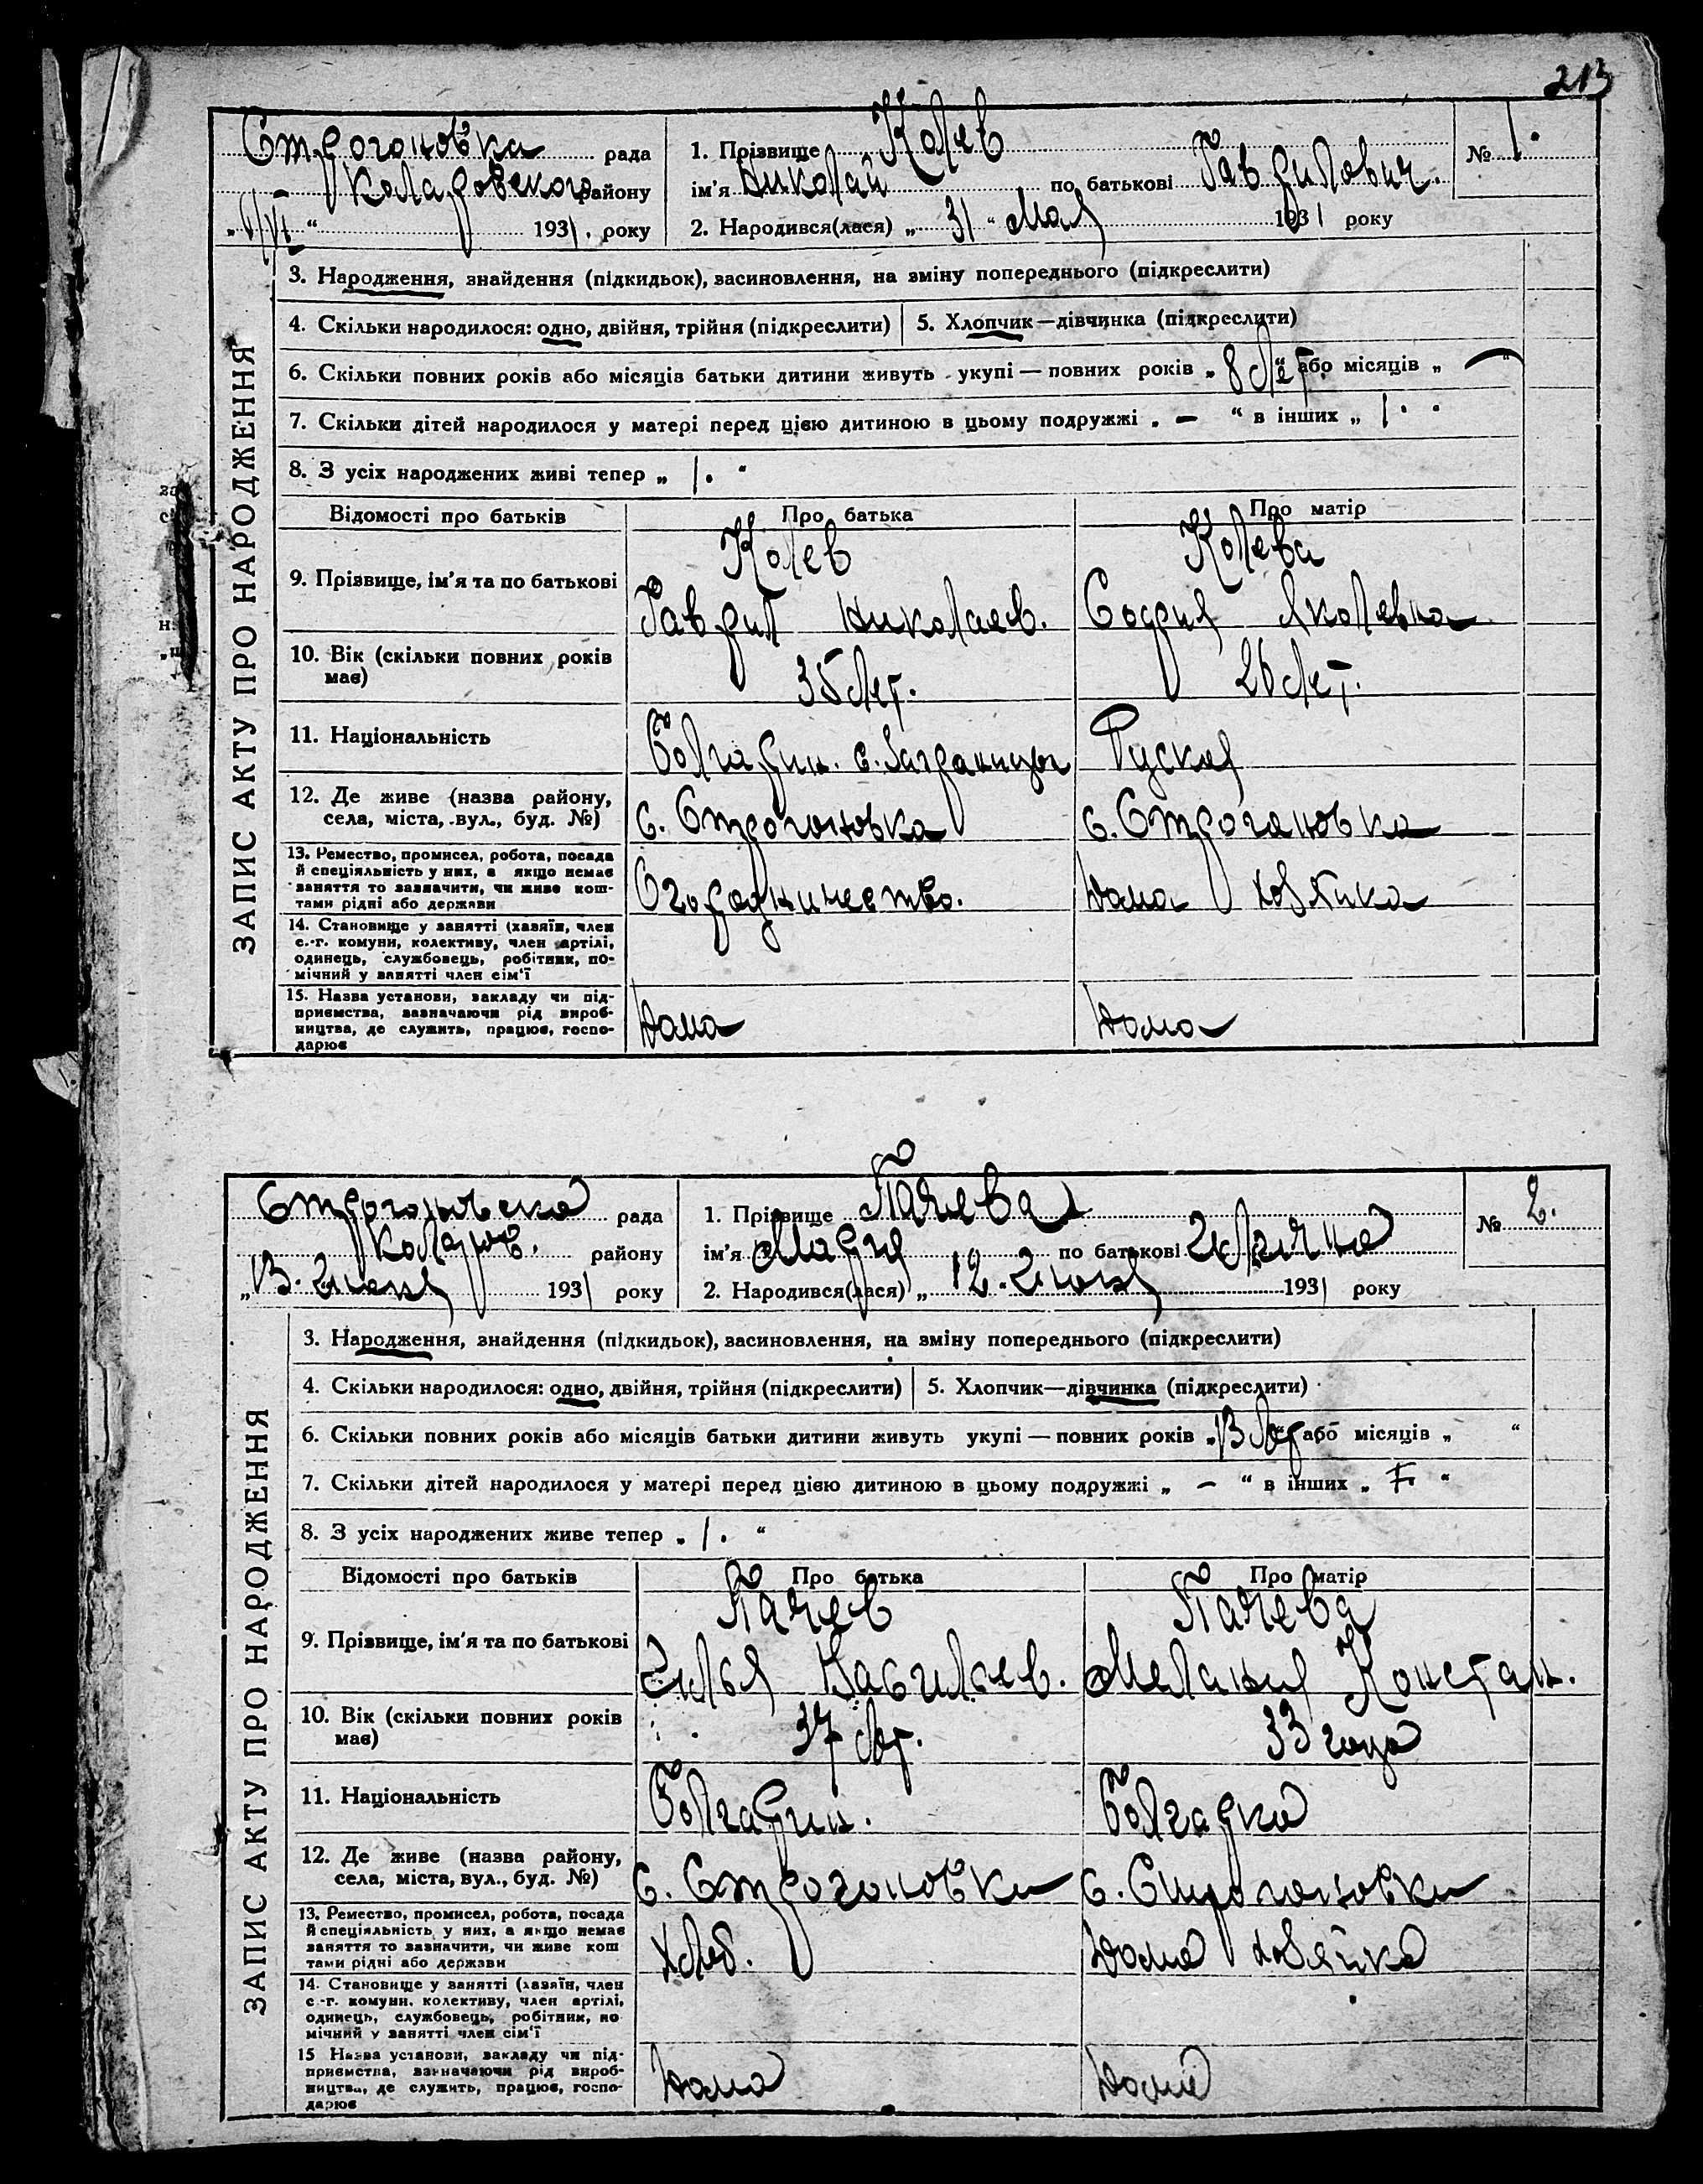 213
Строгоновка рада
Коларовского району
" 1/VI " 1931. року
1. Прізвище Колев
ім'я Николай по батькові Гаврилович.
2. Народився(лася) „ 31 " Мая 1931 року
№ 1.
ЗАПИС АКТУ ПРО НАРОДЖЕННЯ
3. Народження, знайдення (підкидьок), засиновлення, на зміну попереднього (підкреслити)
4. Скільки народилося: одно, двійня, трійня (підкреслити) 5. Хлопчик—дівчинка (підкреслити)
6. Скільки повних років або місяців батьки дитини живуть укупі — повних років „ 8 лет. " або місяців „ — "
7. Скільки дітей народилося у матері перед цією дитиною в цьому подружжі „ — " в інших „ 1. "
8. З усіх народжених живі тепер „ 1. "
Відомості про батьків Про батька Про матір
9. Прізвище, ім'я та по батькові
Колев
Гаврил Николаев.
Колева
София Яковлевна
10. Вік (скільки повних років
має)
35 лет. 26 лет.
11. Національність Болгарин. с. Заграницы Руская
12. Де живе (назва району,
села, міста, вул., буд. №)
с. Строгоновка с. Строгановка
13. Ремество, промисел, робота, посада
й спеціяльність у них, а якщо немає
заняття то зазначити, чи живе кош-
тами рідні або держави
Огородничество. Дома хозяйка
14. Становище у занятті (хазяїн, член
с.-г. комуни, колективу, член артілі,
одинець, службовець, робітник, по-
мічний у занятті член сім'ї
15. Назва установи, закладу чи під-
приємства, зазначаючи рід вироб-
ництва, де служить, працює, госпо-
дарює
Дома Дома
Строгоновска рада
Коларов. району
„ 13. Июня 1931 року
1. Прізвище Пачева
ім'я Мария по батькові Ильична
2. Народився(лася) „ 12. Июня 1931 року
№ 2.
ЗАПИС АКТУ ПРО НАРОДЖЕННЯ
3. Народження, знайдення (підкидьок), засиновлення, на зміну попереднього (підкреслити)
4. Скільки народилося: одно, двійня, трійня (підкреслити) 5. Хлопчик—дівчинка (підкреслити)
6. Скільки повних років або місяців батьки дитини живуть укупі — повних років „ 13 лет " або місяців „ "
7. Скільки дітей народилося у матері перед цією дитиною в цьому подружжі „ — " в інших „ "
8. З усіх народжених живе тепер „ 1. "
Відомості про батьків Про батька Про матір
9. Прізвище, ім'я та по батькові
Пачев
Илья Васильев.
Пачева
Мелания Констан.
10. Вік (скільки повних років
має)
37 лет. 33 года
11. Національність Болгарин. Болгарка
12. Де живе (назва району,
села, міста, вул., буд. №)
с. Строгоновки с. Строгоновки
13. Ремество, промисел, робота, посада
й спеціяльність у них, а якщо немає
заняття то зазначити, чи живе кош
тами рідні або держави
Хлеб. Дома хозяйка
14. Становище у занятті (хазяїн, член
с.-г. комуни, колективу, член артілі,
одинець, службовець, робітник, по
мічний у занятті член сім'ї
15 Назва установи, закладу чи під-
приємства, зазначаючи рід вироб-
ництва, де служить, працює, госпо-
дарює
Дома Дома